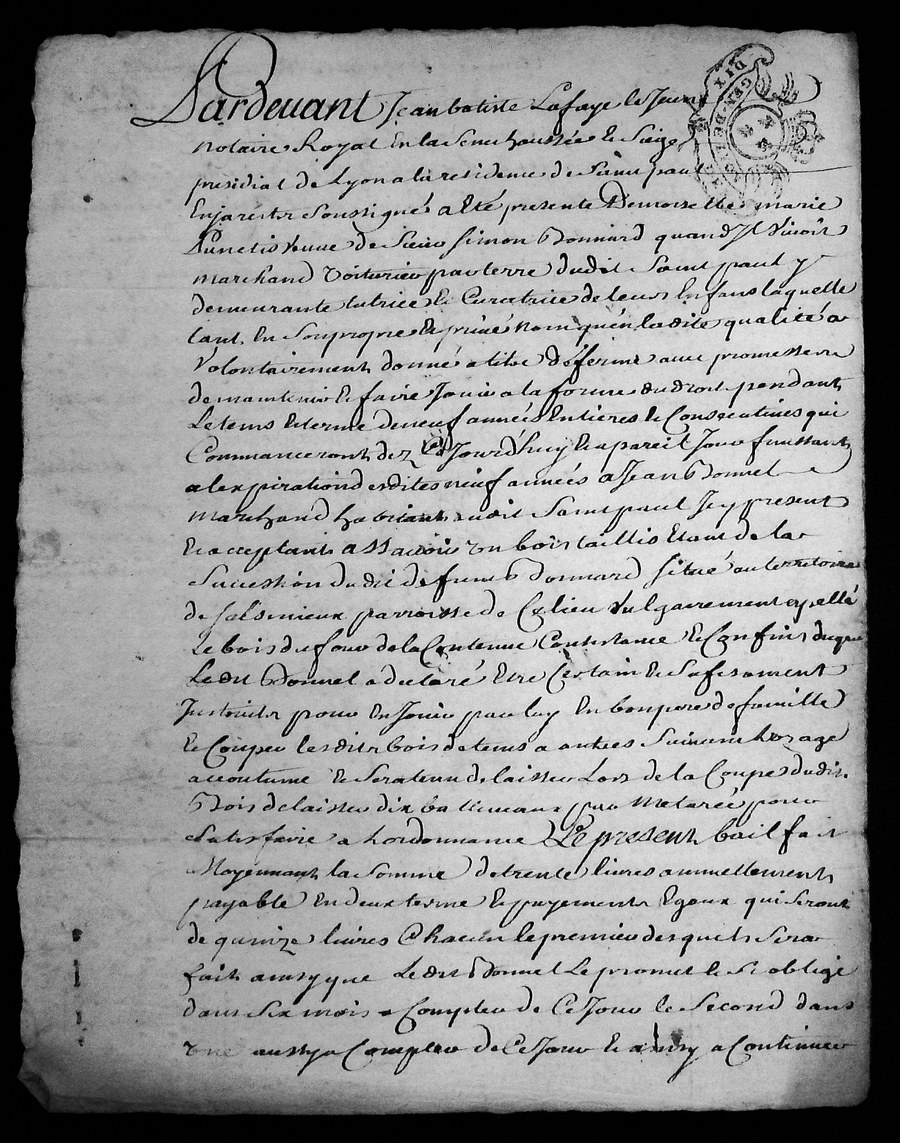 Pardevant Jean batiste Lafaye le Jeune
notaire Royal en la Senechaussée & Siege
presidial de Lyon a la residence de Saint paul
Enjarestz Soussigné a Eté présente Demoiselle marie
veuve de Sieur Simon Bonnard quand Jl vivoit
marchand voiturier par terre dudit Saint paul y
demeurante tutrice & Curatrice de leurs Enfans laquelle
tant En Son propre & privé nom qu'en la dite qualité a
volontairement donné a titre de ferme avec promesse
de maintenir & faire Jouir a la forme du droit pendant
Le tems & terme de neuf années Entières & Consecutives qui
Commanceront dez Ce Jourdhuy & a pareil Jour finissant
a lexpiration desdites neuf années a Jean Bonnet
marchand habitant audit Saint paul Jcy present
& acceptant assavoir un bois taillis Etant de la
Succession dudit defunt Bonnard situé au territoire
de parroisse de Cellieu vulgairement apellé
Le bois du four de la Contenue Consistance & Confins duquel
Ledit Bonnet a déclaré Etre Certain & Sufisament
Jnstruit pour En Jouir par luy En bon pere de famille
& Couper lesdits bois de tems a autres Suivant Luzage
accoutumé & Sera tenu de laisser Lors de la Coupe dudit
Bois de laisser dix balliveaux par Meterée pour
Satisfaire a Lordonnance Le présent bail fait
Moyennant la Somme de trente livres annuellement
payable En deux terme & payements Egaux qui Seront
de quinze livres Chacun le premier desquels Sera
fait ainsy que Ledit Bonnet Le promet & Se oblige
dans Six mois a Compter de Ce Jour le Second dans
une aussy a Compter de Ce Jour & ainsy a Continuer
DIX
GEN. DE